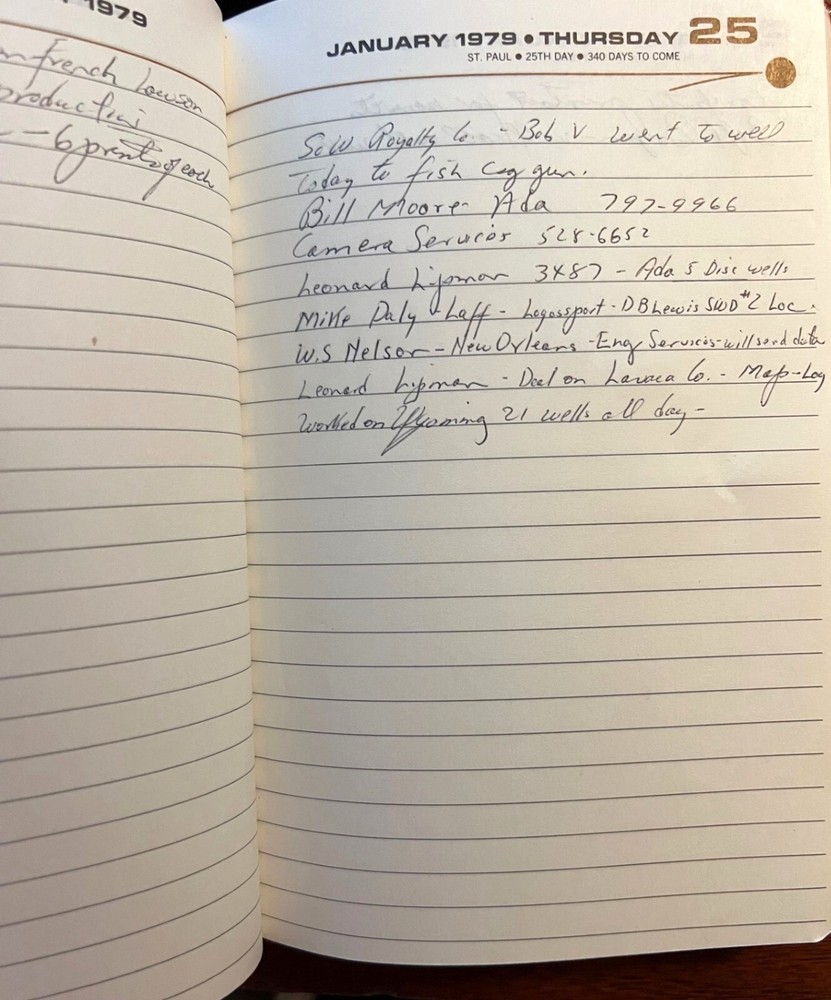 1979
French Lawson
production
- 6 prints of each
JANUARY 1979 • THURSDAY 25
ST. PAUL • 25TH DAY • 340 DAYS TO COME
Royalty Co - Bob V went to well
Today to fish csg gun.
Bill Moore - Ada 797-9966
Camera Services 528-6652
Leonard Lipman 3487 - Ada 5 Disc wells
Mike Daly - Laff - Logassport - DB Lewis SWD #2 Loc.
W.S Nelson - New Orleans - Eng Services - will send data
Leonard Lipman - Deal on Lavaca Co. - Map - Log
Worked on Wyoming 21 wells all day -